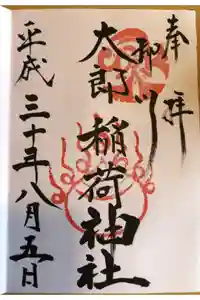 奉拝
柳川
太郎稲荷神社
平成三十年八月五日